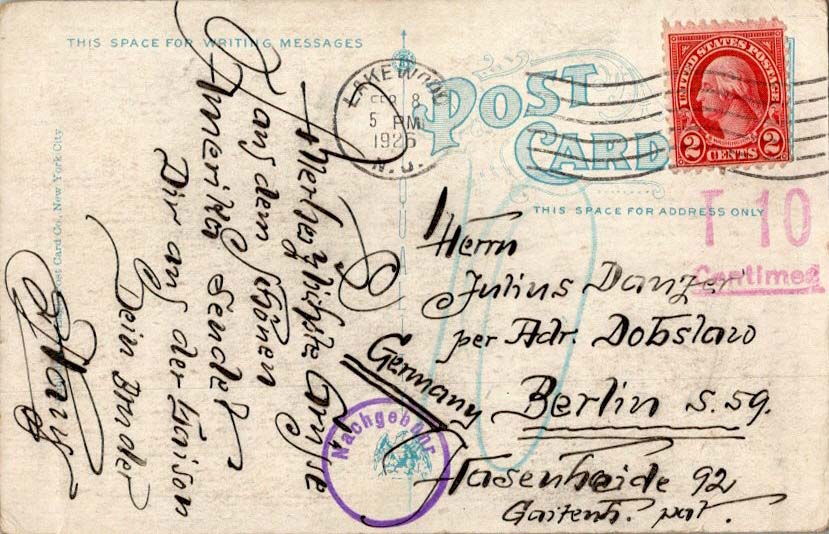 THIS SPACE FOR WRITING MESSAGES
POST
CARD
THIS SPACE FOR ADDRESS ONLY
LAKEWOOD
FEB 8
5 PM
1926
N.J.
UNITED STATES POSTAGE
WASHINGTON
2 CENTS 2
T 10
Centimes
10
Allerherzlichste Grüsse
aus dem schönen
Amerika sendet
Dir auf der Saison
Dein Bruder
Hans
Herrn
Julius Danzer
per Adr. Dobslaw
Germany
Berlin S. 59.
Hasenheide 92
Gartenh. part.
Nachgebühr
Post Card Co., New York City